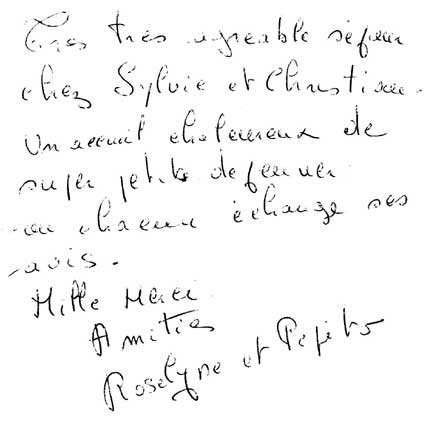 Très très agréable séjour
chez Sylvie et Christian.
Un accueil chaleureux de
super petits dejeuner
ou chacun échange ses
avis.
Mille Merci
Amitiés
Roselyne et Pepito